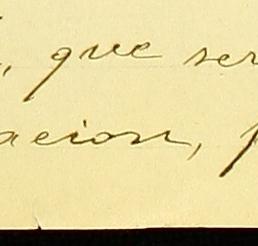 , que ser
acion, p